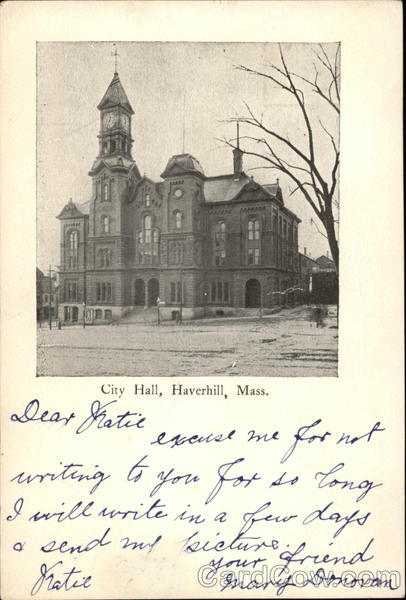 City Hall, Haverhill, Mass.
Dear Katie
excuse me for not
writing to you for so long
I will write in a few days
& send my picture.
your friend
Katie
Mary Donovan
CardCow.com